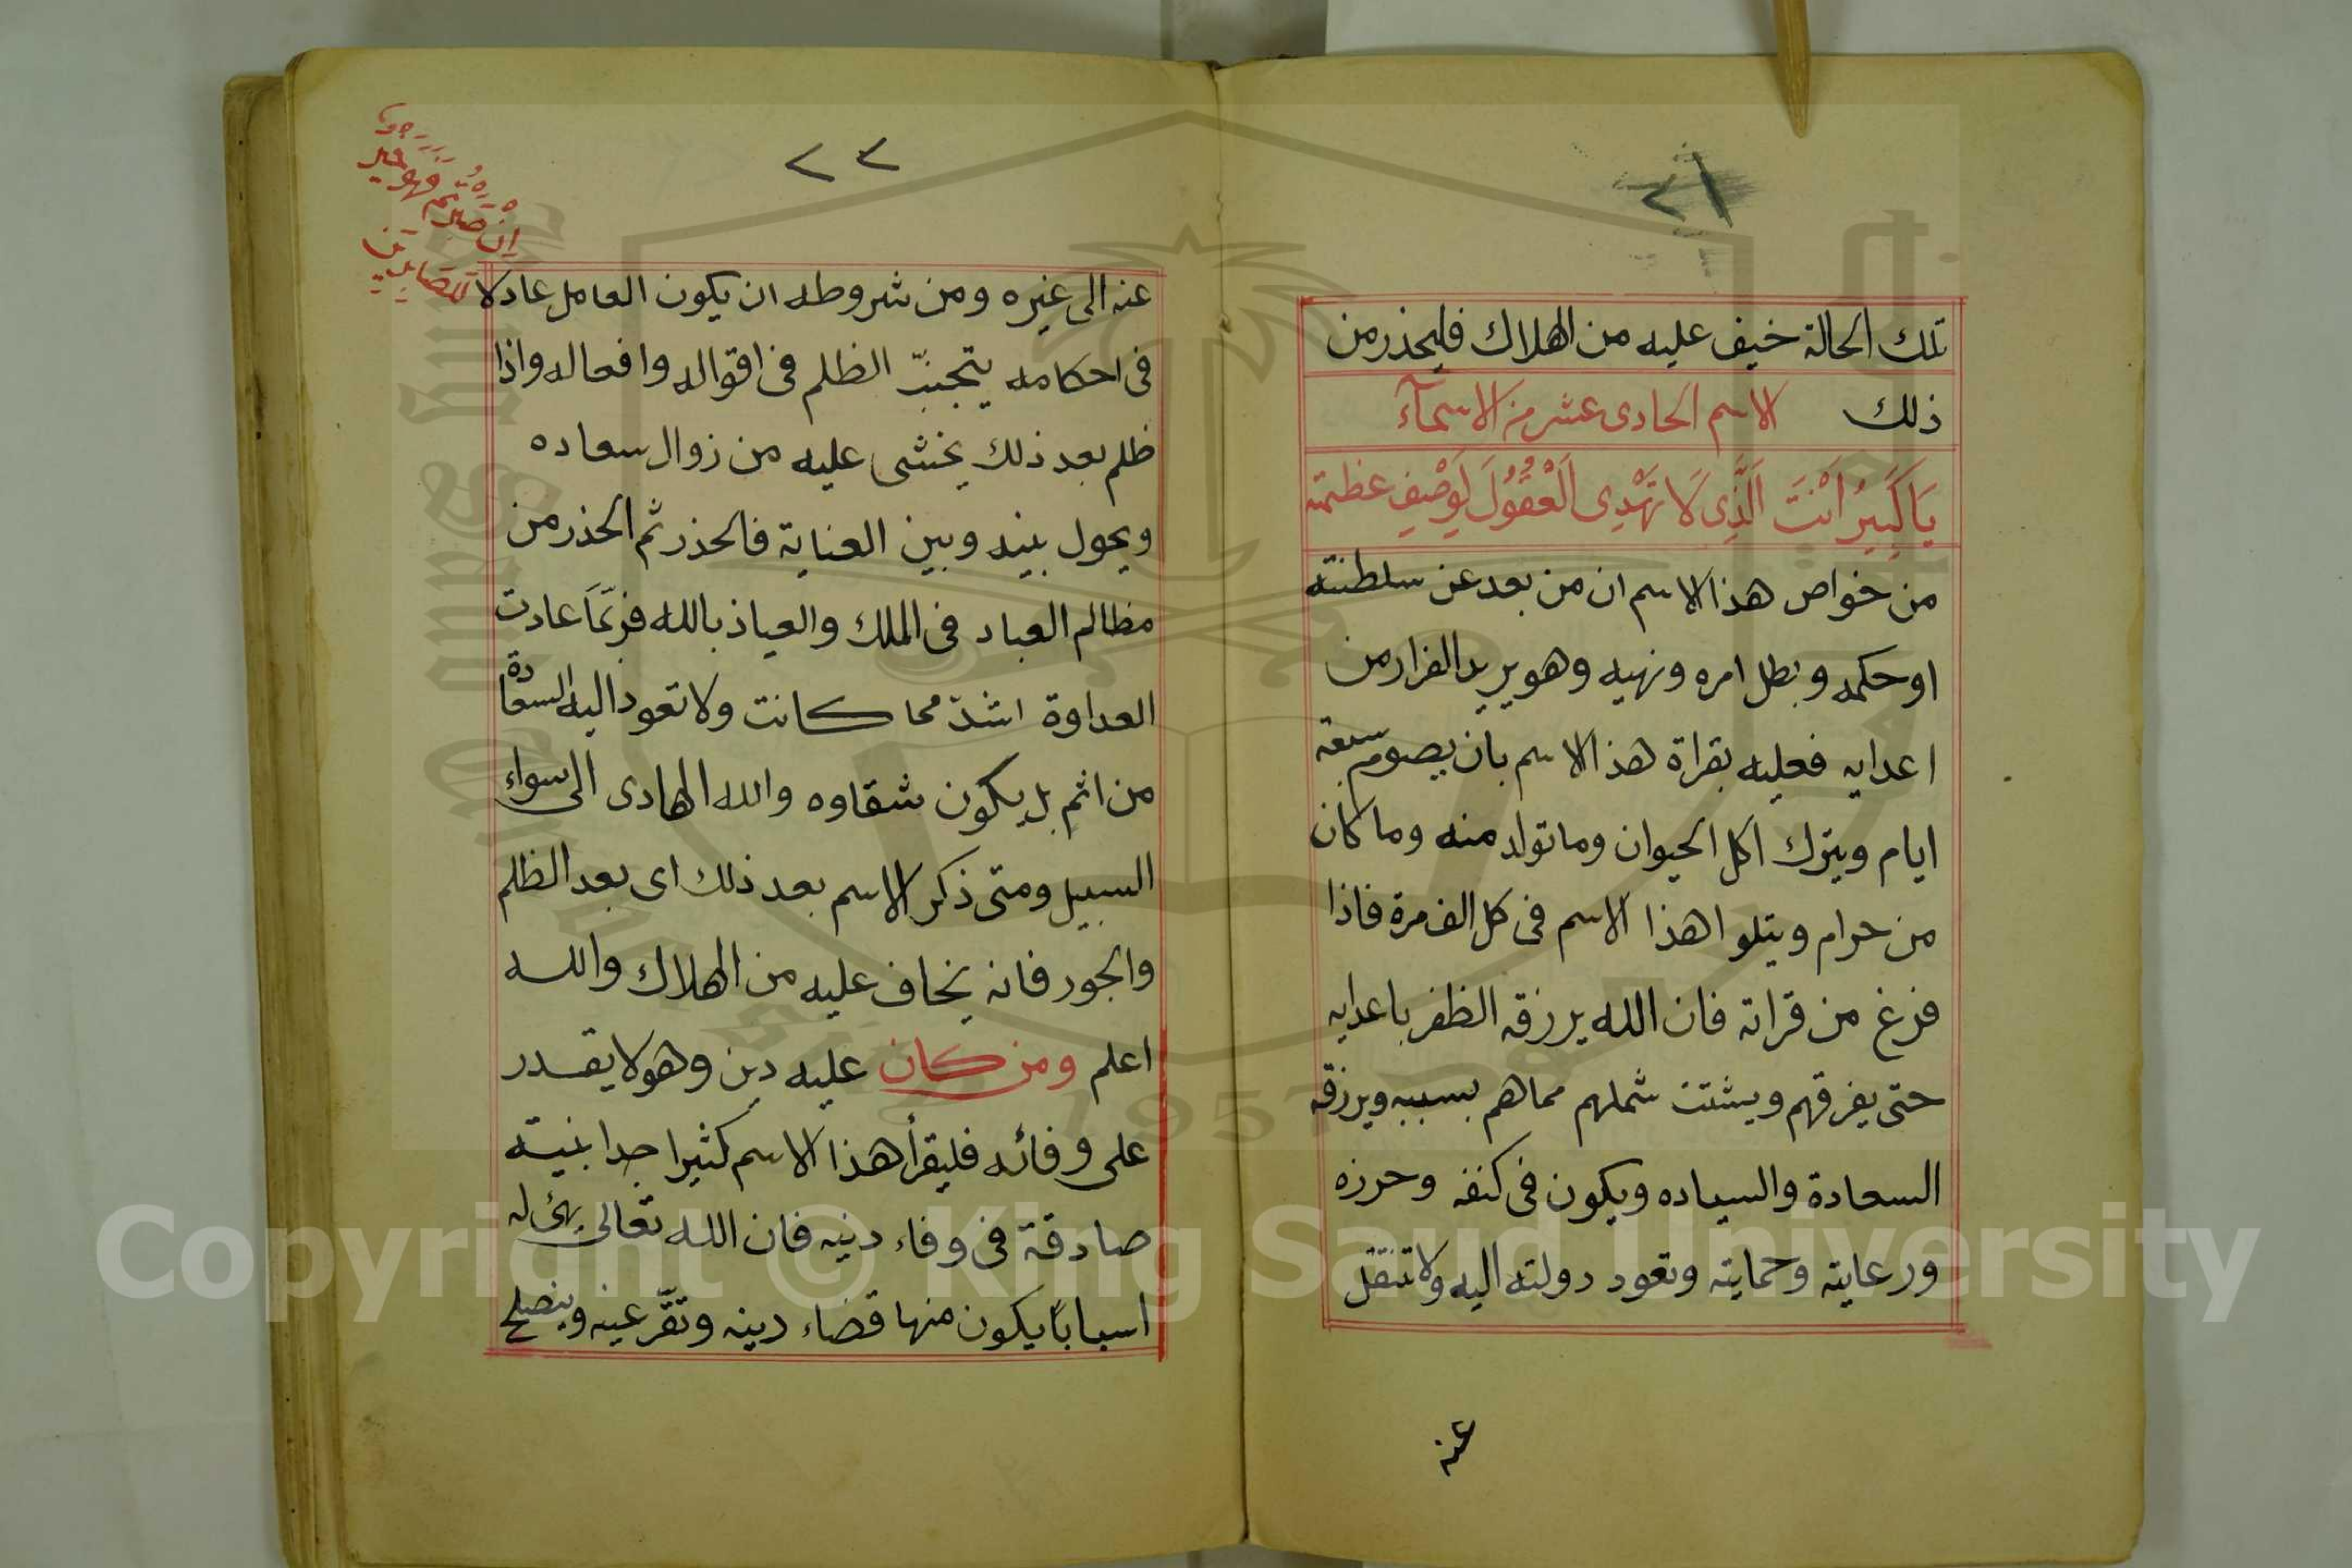 ٢١
تلك الحالة خيف عليه من الهلاك فليحذر من
ذلك الاسم الحادى عشر من الاسمآء
يَا كَبِيرُ اَنْتَ اَلَّذِى لَا تَهْدِى اَلْعُقُولَ لِوَصْفِ عظمته
من خواص هذا الاسم ان من بعد عن سلطنته
او حكمه وبطل امره ونهيه وهو يريد الفرار من
اعدايه فعليه بقراة هذا الاسم بان يصوم سبعة
ايام ويترك اكل الحيوان وما تولد منه وما كان
من حرام ويتلوا هذا الاسم فى كل الف مرة فاذا
فرغ من قراته فان الله يرزقه الظفر باعدايه
حتى يفرقهم ويشتت شملهم مماهم بسببه ويرزقه
السعادة والسياده ويكون فى كنفه وحرزه
ورعايته وحمايته وتعود دولته اليه ولا تنتقل
عنه
٢٢
اِنْ صَبَرْتُم فَهُوَ خَيْر
للصَابِرِين
عنه الى غيره ومن شروطه ان يكون العامل عادلا
فى احكامه يتجنبّ الظلم فى اقواله وافعاله واذا
ظلم بعد ذلك يخشى عليه من زوال سعاده
ويحول بينه وبين العناية فالحذر ثم الحذر من
مظالم العباد فى الملك والعياذ بالله فربّمَا عادت
العداوة اشدّ مما كانت ولا تعود اليه السعادة
من اثم بل يكون شقاوه والله الهادى الى سواء
السبيل ومتى ذكر الاسم بعد ذلك اى بعد الظلم
والجور فانه يخاف عليه من الهلاك والله
اعلم ومن كان عليه دين وهو لا يقدر
على وفائه فليقرأ هذا الاسم كثيرا جدا بنية
صادقة فى وفاء دينه فان الله تعالى يهئ له
اسبابًا يكون منها قضاء دينه وتقّر عينه وينصلح
Copyright © King Saud University
1957